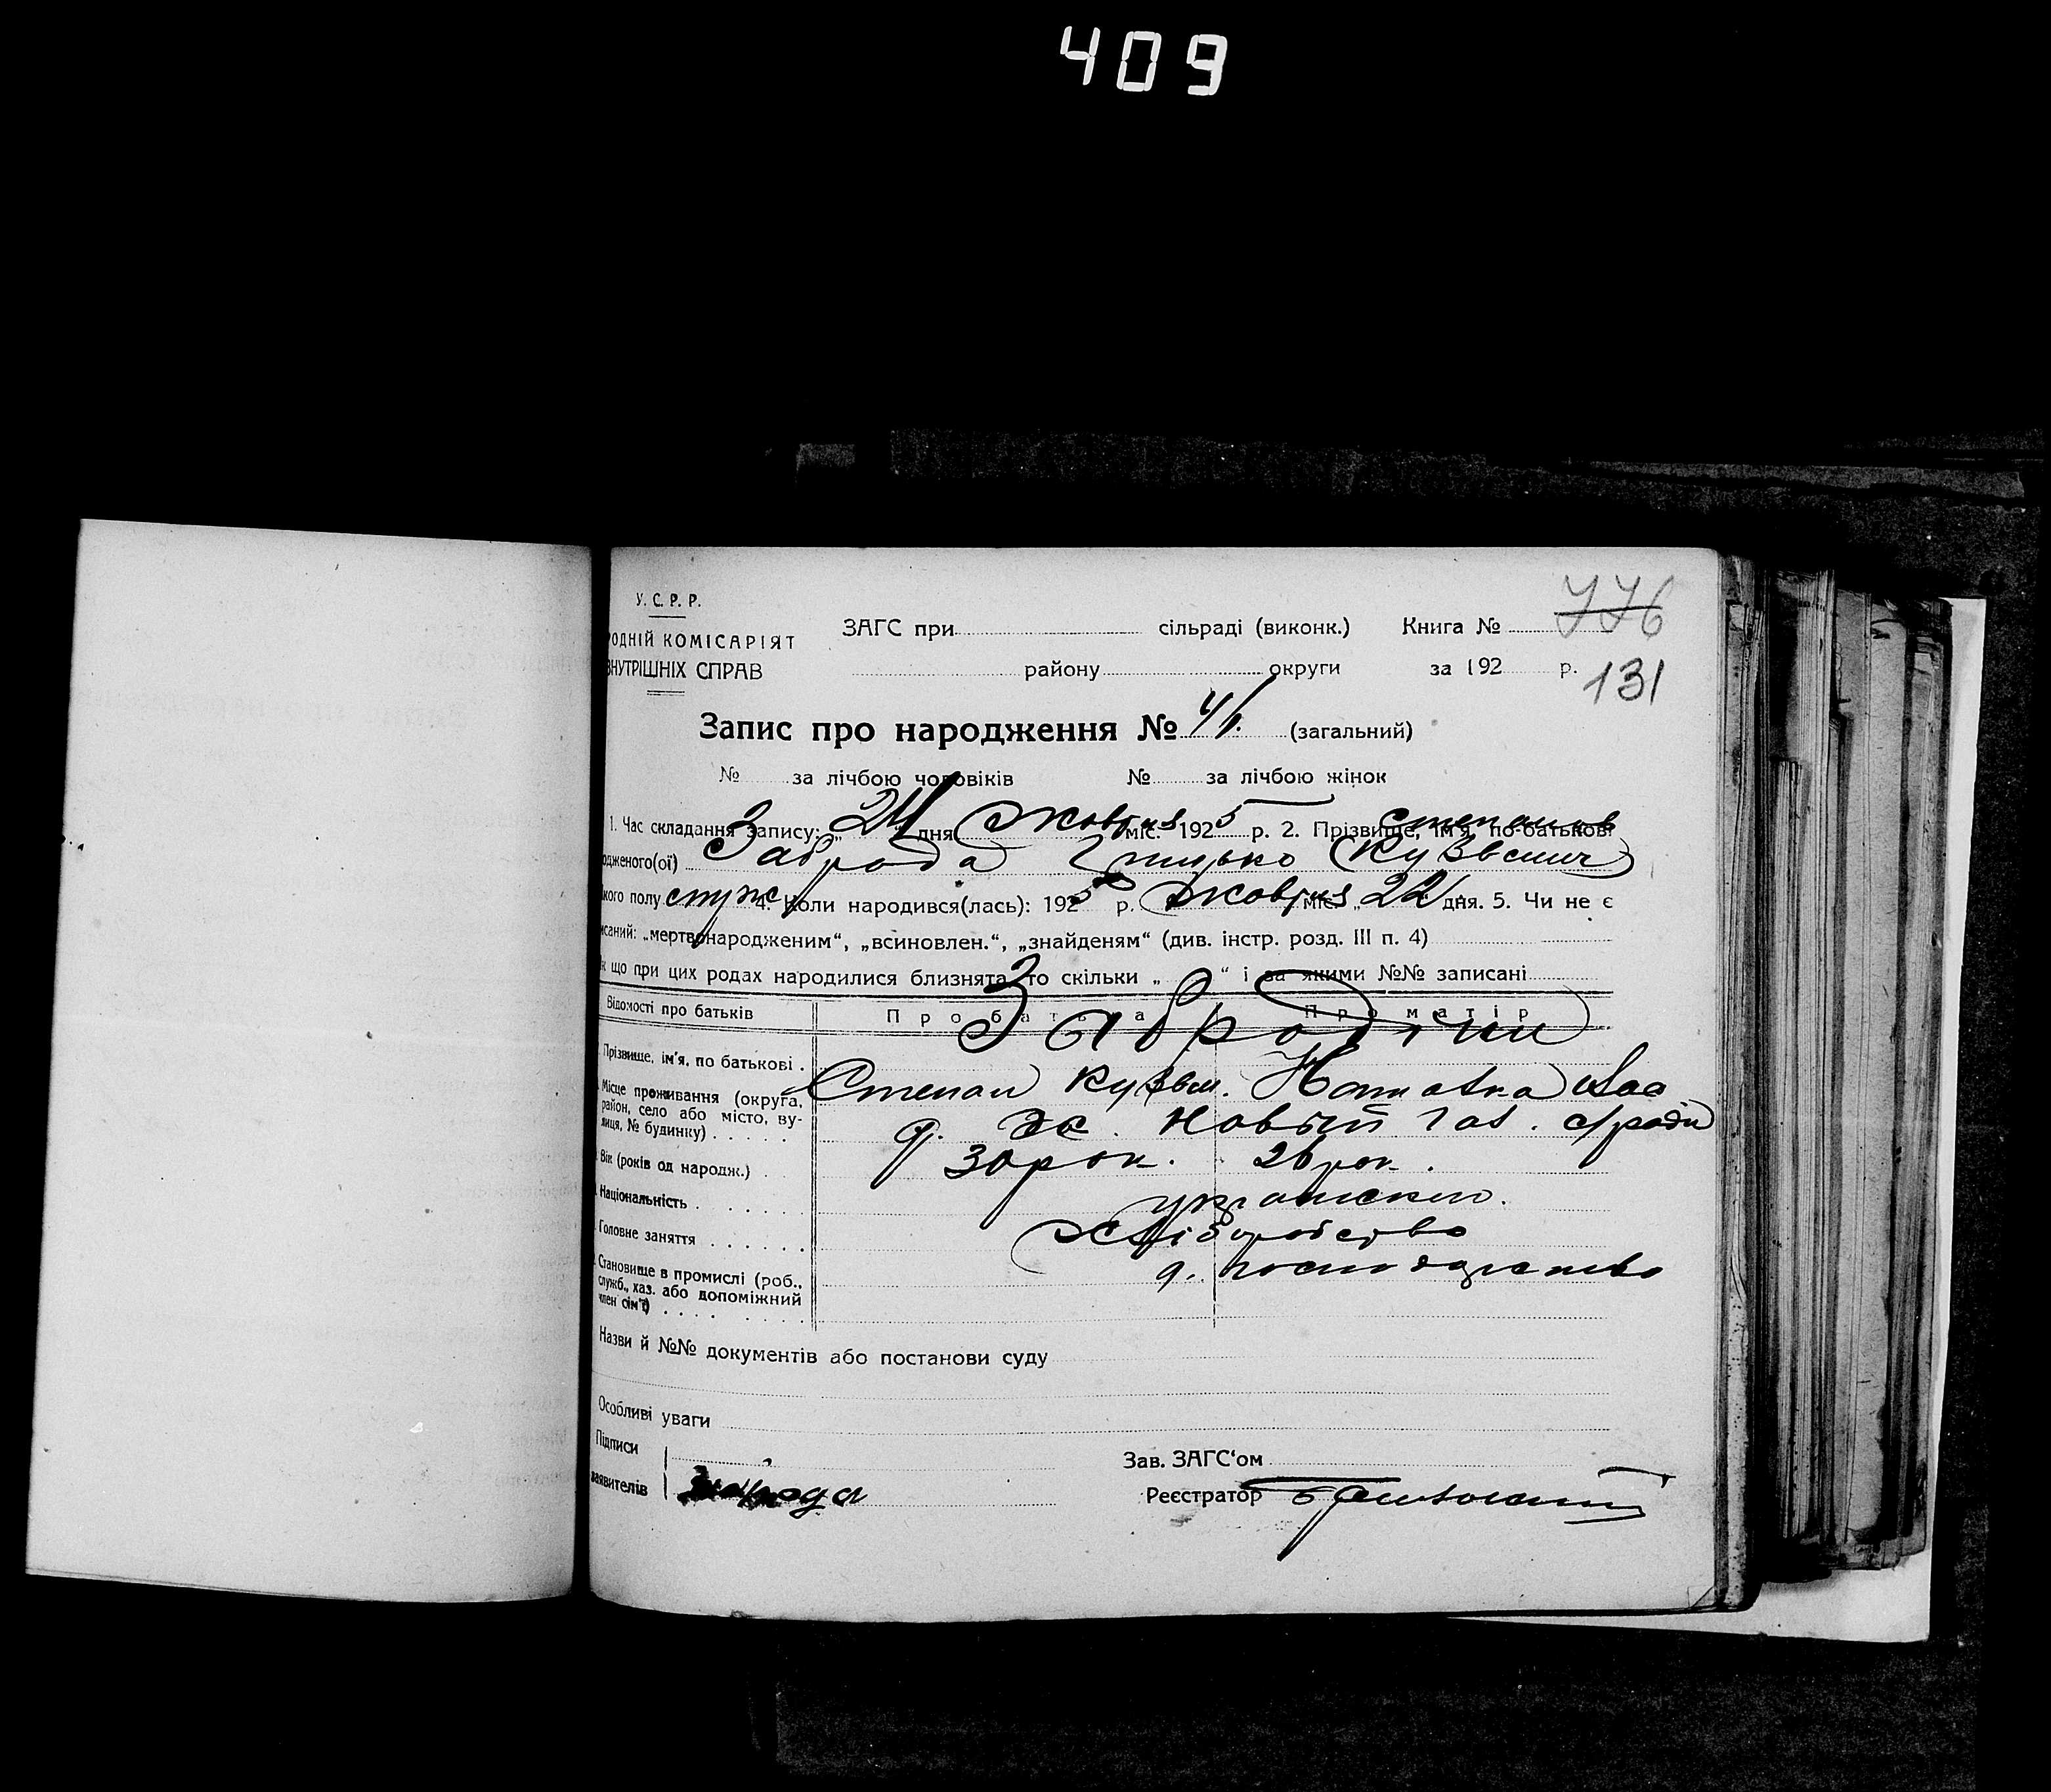 409
У. С. Р. Р.
776
ОДНІЙ КОМІСАРІЯТ
ЗАГС при сільраді (виконк.) Книга №
НУТРІШНІХ СПРАВ
району округи за 192 р.
131
Запис про народження № 41. (загальний)
№ за лічбою чоловіків № за лічбою жінок
1. Час складання запису: „24“ дня Жовтня міс. 1925 р. 2. Прізвище, ім'я, по-батькові
Степанов
одженого(ої) Заброда Грицько Кузьмич
кого полу муж 4. Коли народився(лась): 1925 р. Жовтня міс. „22“ дня. 5. Чи не є
исаний: „мертвонародженим“, „всиновлен.“, „знайденям“ (див. інстр. розд. III п. 4)
к що при цих родах народилися близнята, то скільки „ “ і за якими №№ записані
Відомості про батьків Про батька Про матір
Прізвище, ім'я, по батькові .
Степан Кузьм.
Місце проживання (округа, район, село або місто, вулиця, № будинку) . . . . .
Вік (років од народж.) . 30 рок. 26 рок.
Національність . . . . . .
Головне заняття . . . . . . Хліборобство
Становище в промислі (роб., служб., хаз. або допоміжний член сім'ї) . . . .
Назви й №№ документів або постанови суду
Особливі уваги
Підписи
Зав. ЗАГС'ом
заявителів Заброда
Реєстратор